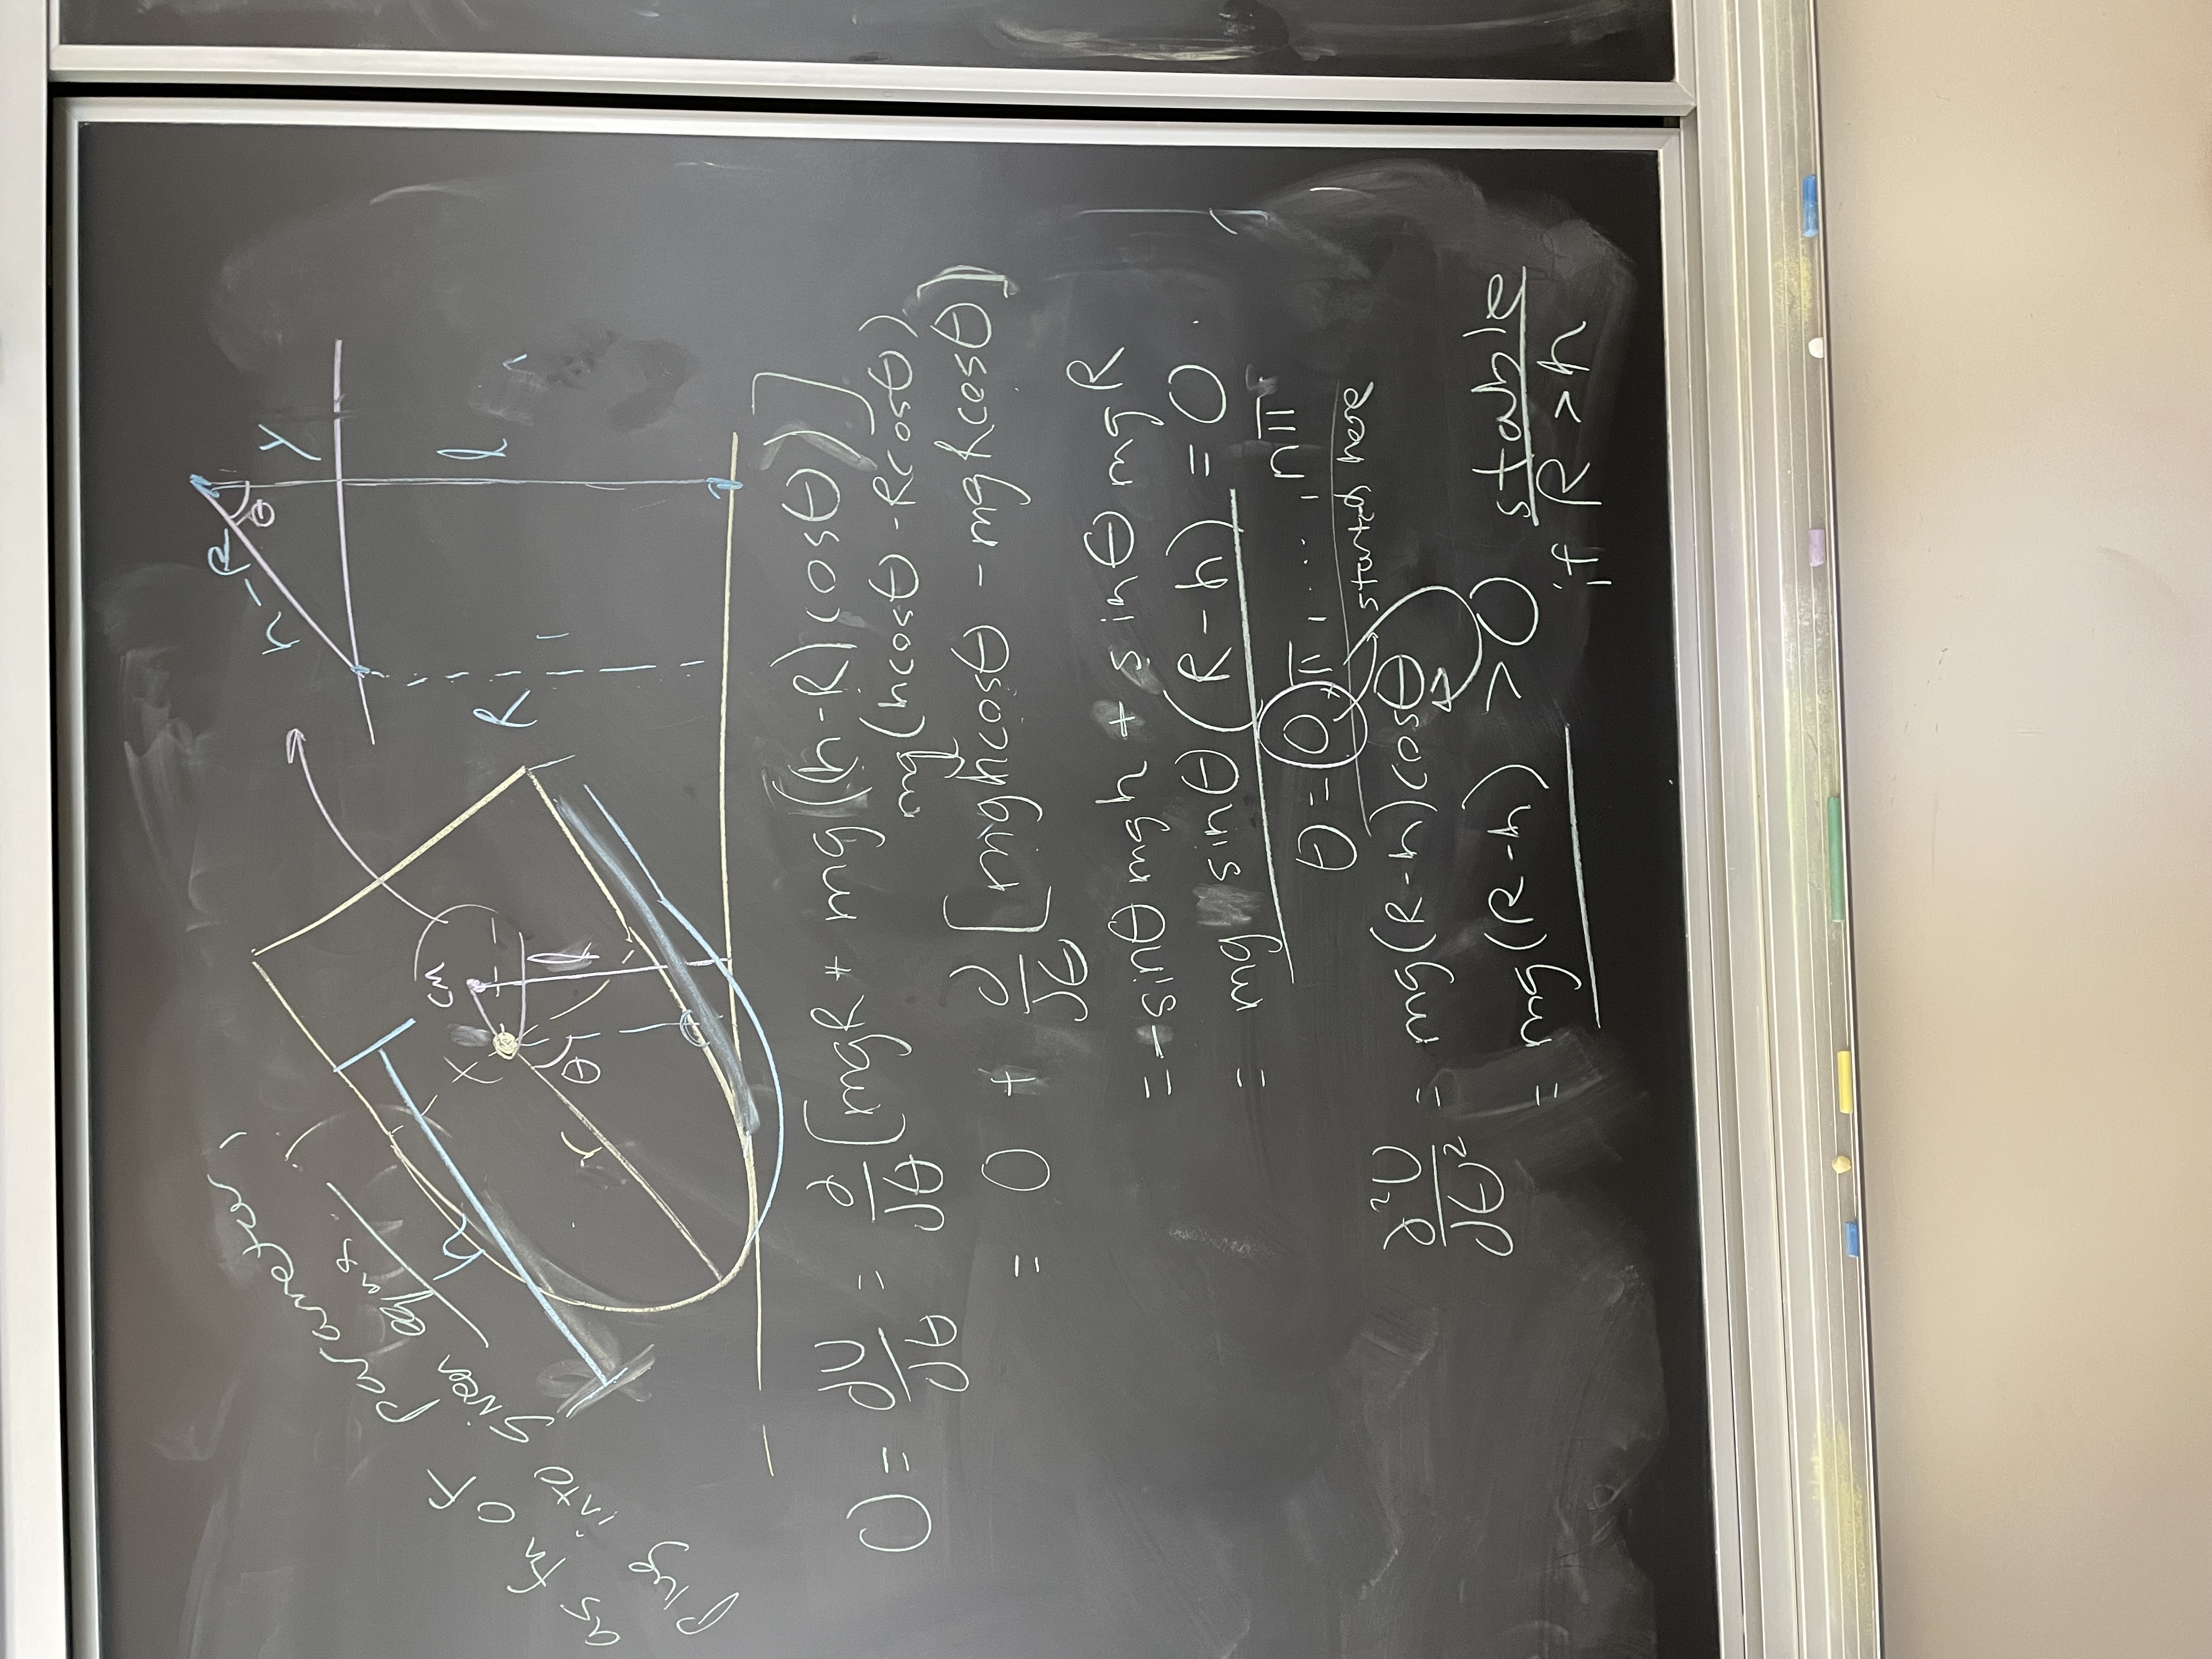 as fn of parameter,
plug into given eqns.
h
CM
r
θ
l
h-R
θ
y
R
l
0 = dU/dθ = ∂/∂θ [mgR + mg((h-R)cosθ)]
mg(hcosθ - Rcosθ)
= 0 + ∂/∂θ [mghcosθ - mgRcosθ]
= -sinθ mgh + sinθ mgR
= mg sinθ (R-h) = 0
θ = 0, π, ..., nπ
started here
∂²U/∂θ² = mg(R-h)cosθ
= mg(R-h) > 0 stable
if R > h